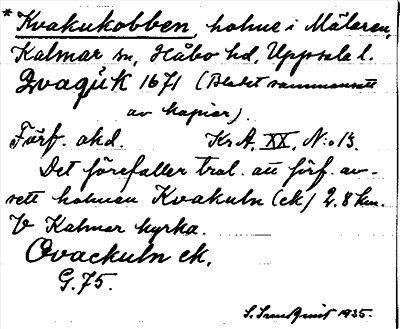 * Kvakukobben, holme i Mälaren,
Kalmar sn, Håbo hd, Uppsala l.
Qvagůk 1671 (Bladet sammansatt
av kopior).
Förf. okd. KrA. XX. N:o 13.
Det förefaller trol. att förf. av-
sett holmen Kvakuln (ek) 2.8 km.
V Kalmar kyrka.
Qvackuln ek.
G. 75.
S. Sundqvist 1935.